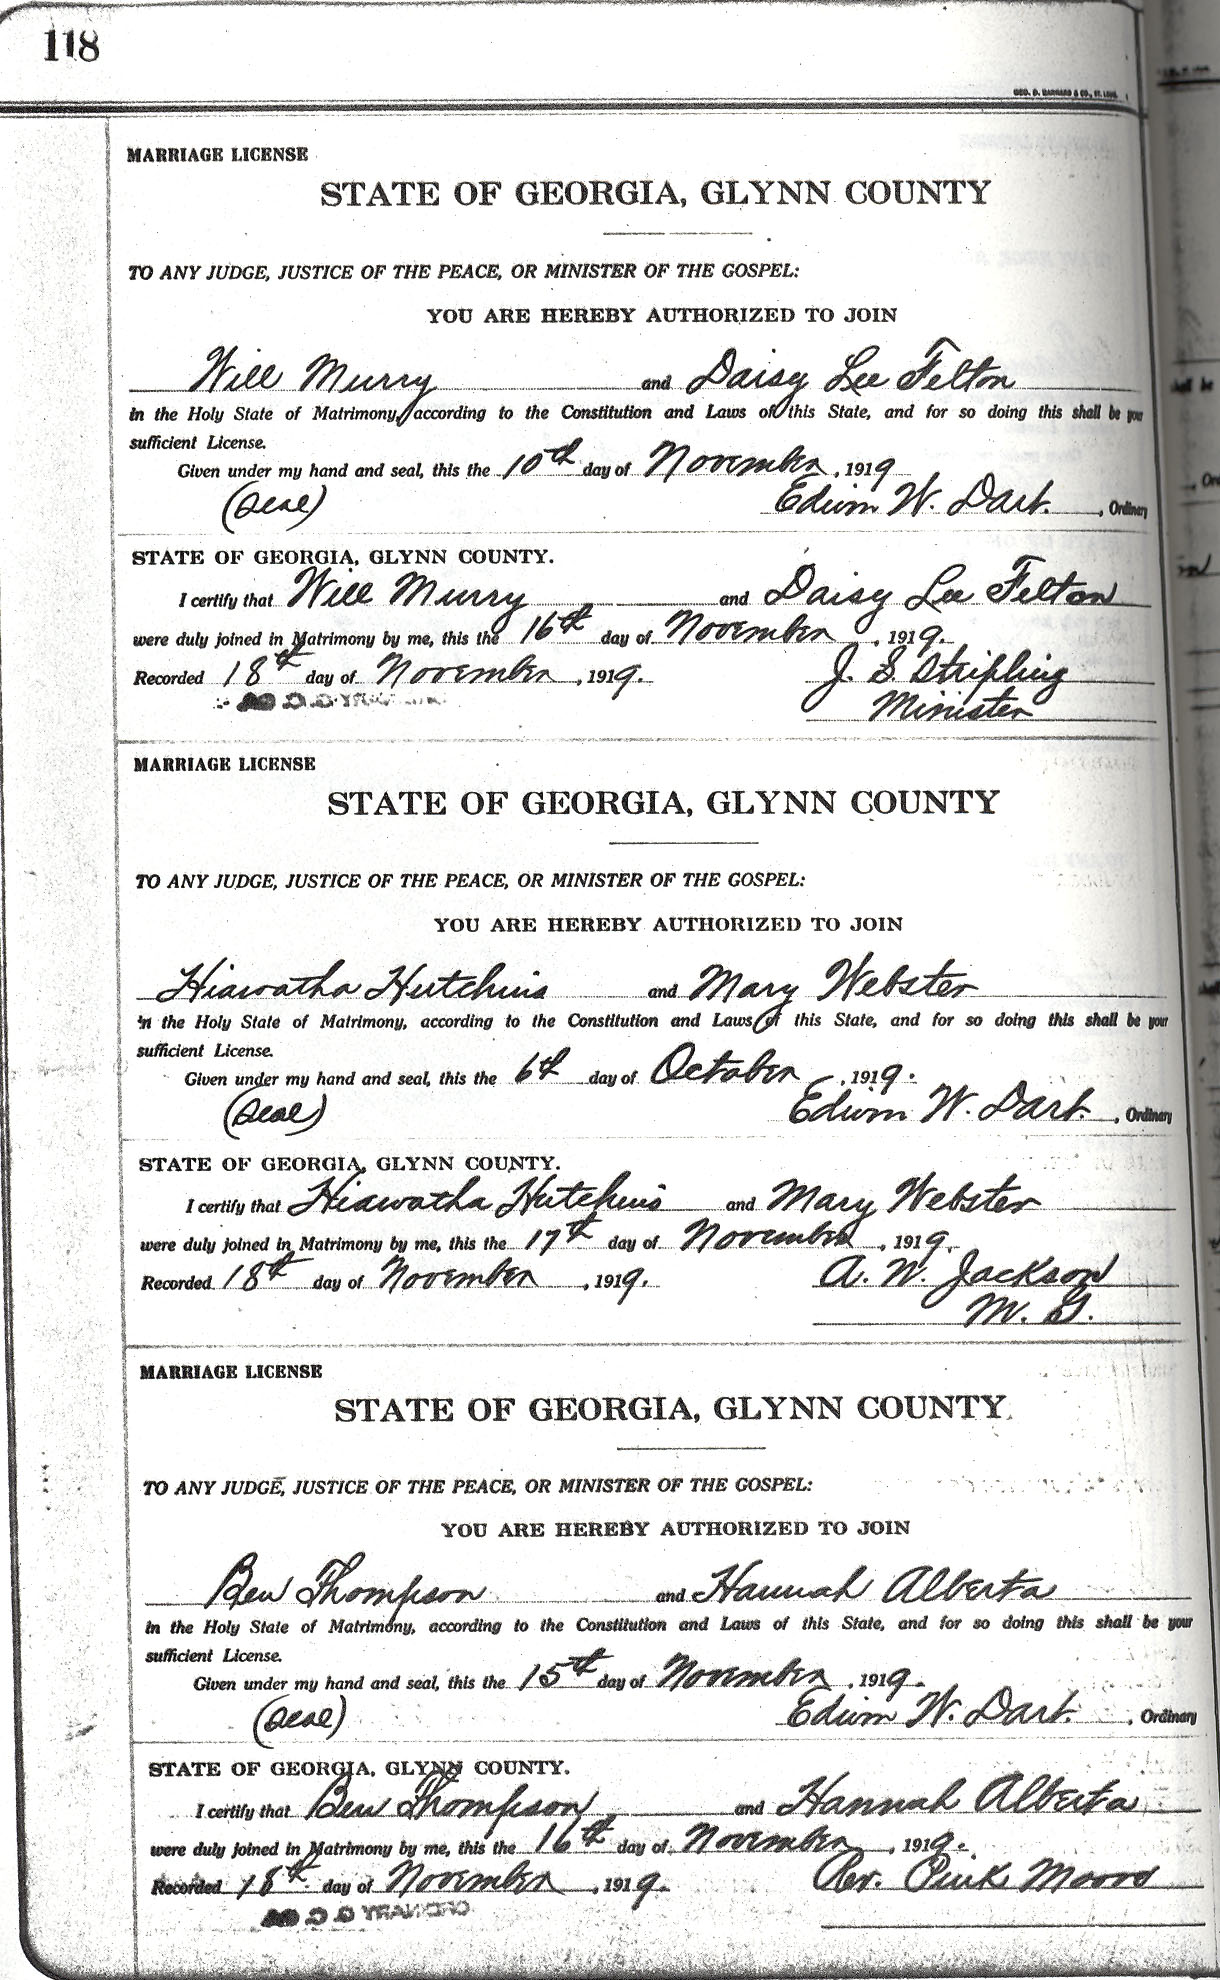 118
GEO. D. BARNARD & CO., ST. LOUIS
MARRIAGE LICENSE
STATE OF GEORGIA, GLYNN COUNTY
TO ANY JUDGE, JUSTICE OF THE PEACE, OR MINISTER OF THE GOSPEL:
YOU ARE HEREBY AUTHORIZED TO JOIN
Will Murry and Daisy Lee Felton
in the Holy State of Matrimony, according to the Constitution and Laws of this State, and for so doing this shall be your
sufficient License.
Given under my hand and seal, this the 10th day of November, 1919
(Seal) Edwin W. Dart., Ordinary
STATE OF GEORGIA, GLYNN COUNTY.
I certify that Will Murry and Daisy Lee Felton
were duly joined in Matrimony by me, this the 16th day of November, 1919.
Recorded 18th day of November, 1919. J. S. Stripling
Minister
MARRIAGE LICENSE
STATE OF GEORGIA, GLYNN COUNTY
TO ANY JUDGE, JUSTICE OF THE PEACE, OR MINISTER OF THE GOSPEL:
YOU ARE HEREBY AUTHORIZED TO JOIN
Hiawatha Hutchins and Mary Webster
in the Holy State of Matrimony, according to the Constitution and Laws of this State, and for so doing this shall be your
sufficient License.
Given under my hand and seal, this the 6th day of October, 1919.
(Seal) Edwin W. Dart., Ordinary
STATE OF GEORGIA, GLYNN COUNTY.
I certify that Hiawatha Hutchins and Mary Webster
were duly joined in Matrimony by me, this the 17th day of November, 1919.
Recorded 18th day of November, 1919. A. W. Jackson
M. G.
MARRIAGE LICENSE
STATE OF GEORGIA, GLYNN COUNTY
TO ANY JUDGE, JUSTICE OF THE PEACE, OR MINISTER OF THE GOSPEL:
YOU ARE HEREBY AUTHORIZED TO JOIN
Ben Thompson and Hannah Alberta
in the Holy State of Matrimony, according to the Constitution and Laws of this State, and for so doing this shall be your
sufficient License.
Given under my hand and seal, this the 15th day of November, 1919.
(Seal) Edwin W. Dart., Ordinary
STATE OF GEORGIA, GLYNN COUNTY.
I certify that Ben Thompson and Hannah Alberta
were duly joined in Matrimony by me, this the 16th day of November, 1919.
Recorded 18th day of November, 1919. Rev. Pink Moore